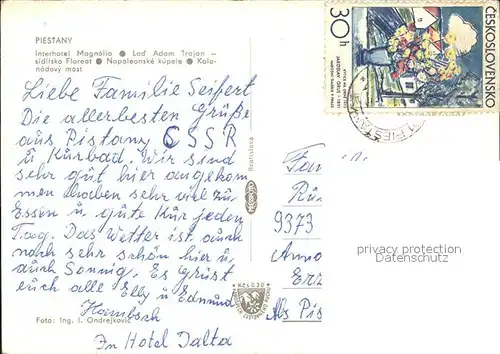 PIESTANY
Interhotel Magnólia ● Loď Adam Trajan –
sídlisko Floreat ● Napoleonské kúpele ● Kolo-
nádový most
Liebe Familie Seifert
Die allerbesten Grüße
aus Pistany ČSSR
u Kurbad. Wir sind
sehr gut hier angekom
men haben sehr viel zu
Essen u gute Kur jeden
Tag. Das Wetter ist auch
noch sehr schön hier u
auch Sonnig. Es Grüst
euch alle Elly u Edmund
Hambsch
In Hotel Jalta
Foto: Ing. I. Ondrejkovič
Bratislava
Kčs 0,20
30h
ČESKOSLOVENSKO
JAROSLAV GRUS - 1891
Fam
9373
Anno
Erz
Abs Pis
privacy protection
Datenschutz